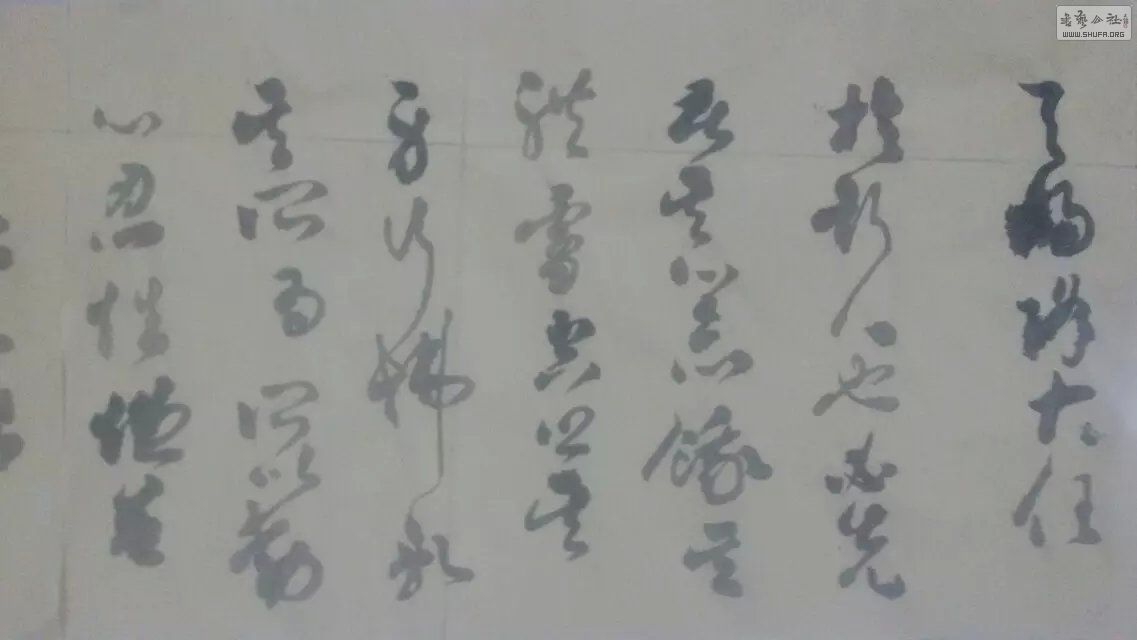 天將降大任
於斯人也必先
苦其心志餓其
體膚空乏其
身行拂亂
其所為所以動
心忍性增益
書藝公社
WWW.SHUFA.ORG